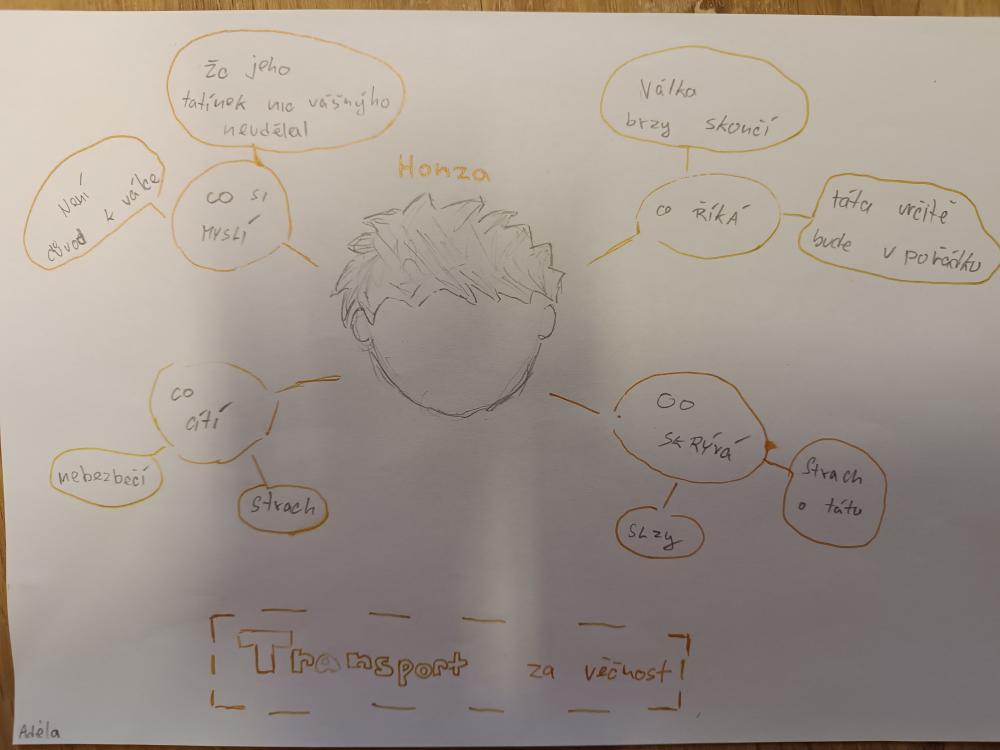 Honza
Že jeho
tatínek nic vášnýho
neudělal
Není
důvod k válce
co si
MYSLÍ
Válka
brzy skončí
co ŘÍKÁ
táta určitě
bude v pořádku
co
cítí
nebezbečí
strach
co
SKRÝVÁ
Strach
o tátu
SLzy
Transport za věčnost
Adéla